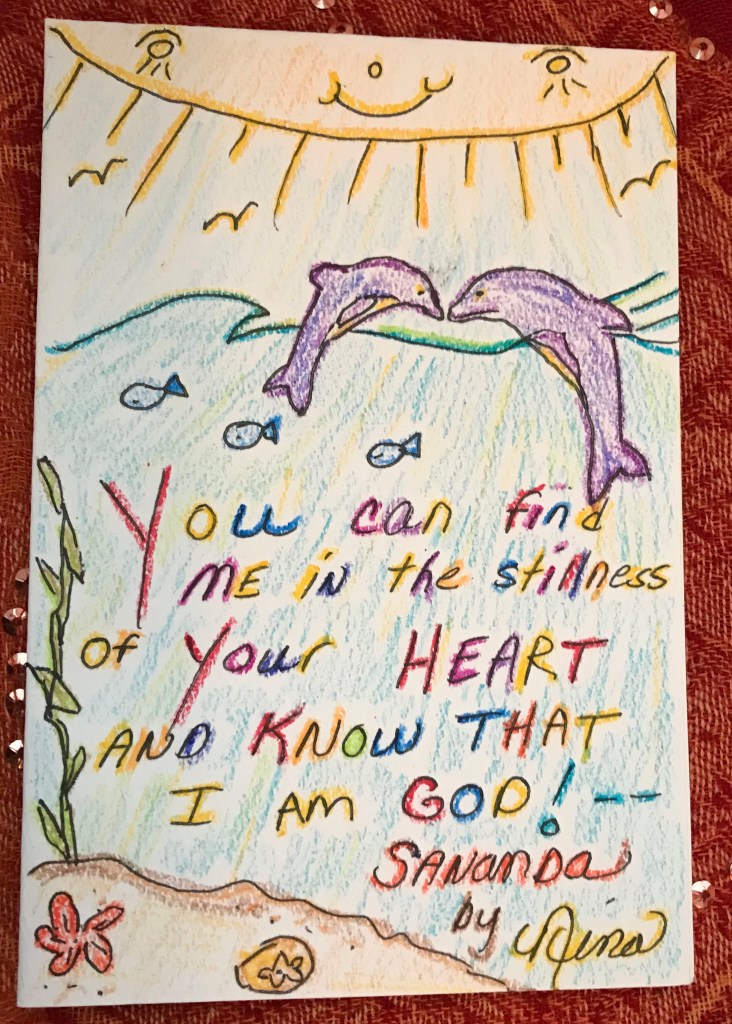 You can find
ME in the stillness
of your HEART
AND KNOW THAT
I AM GOD! --
SANANDA
by Nina